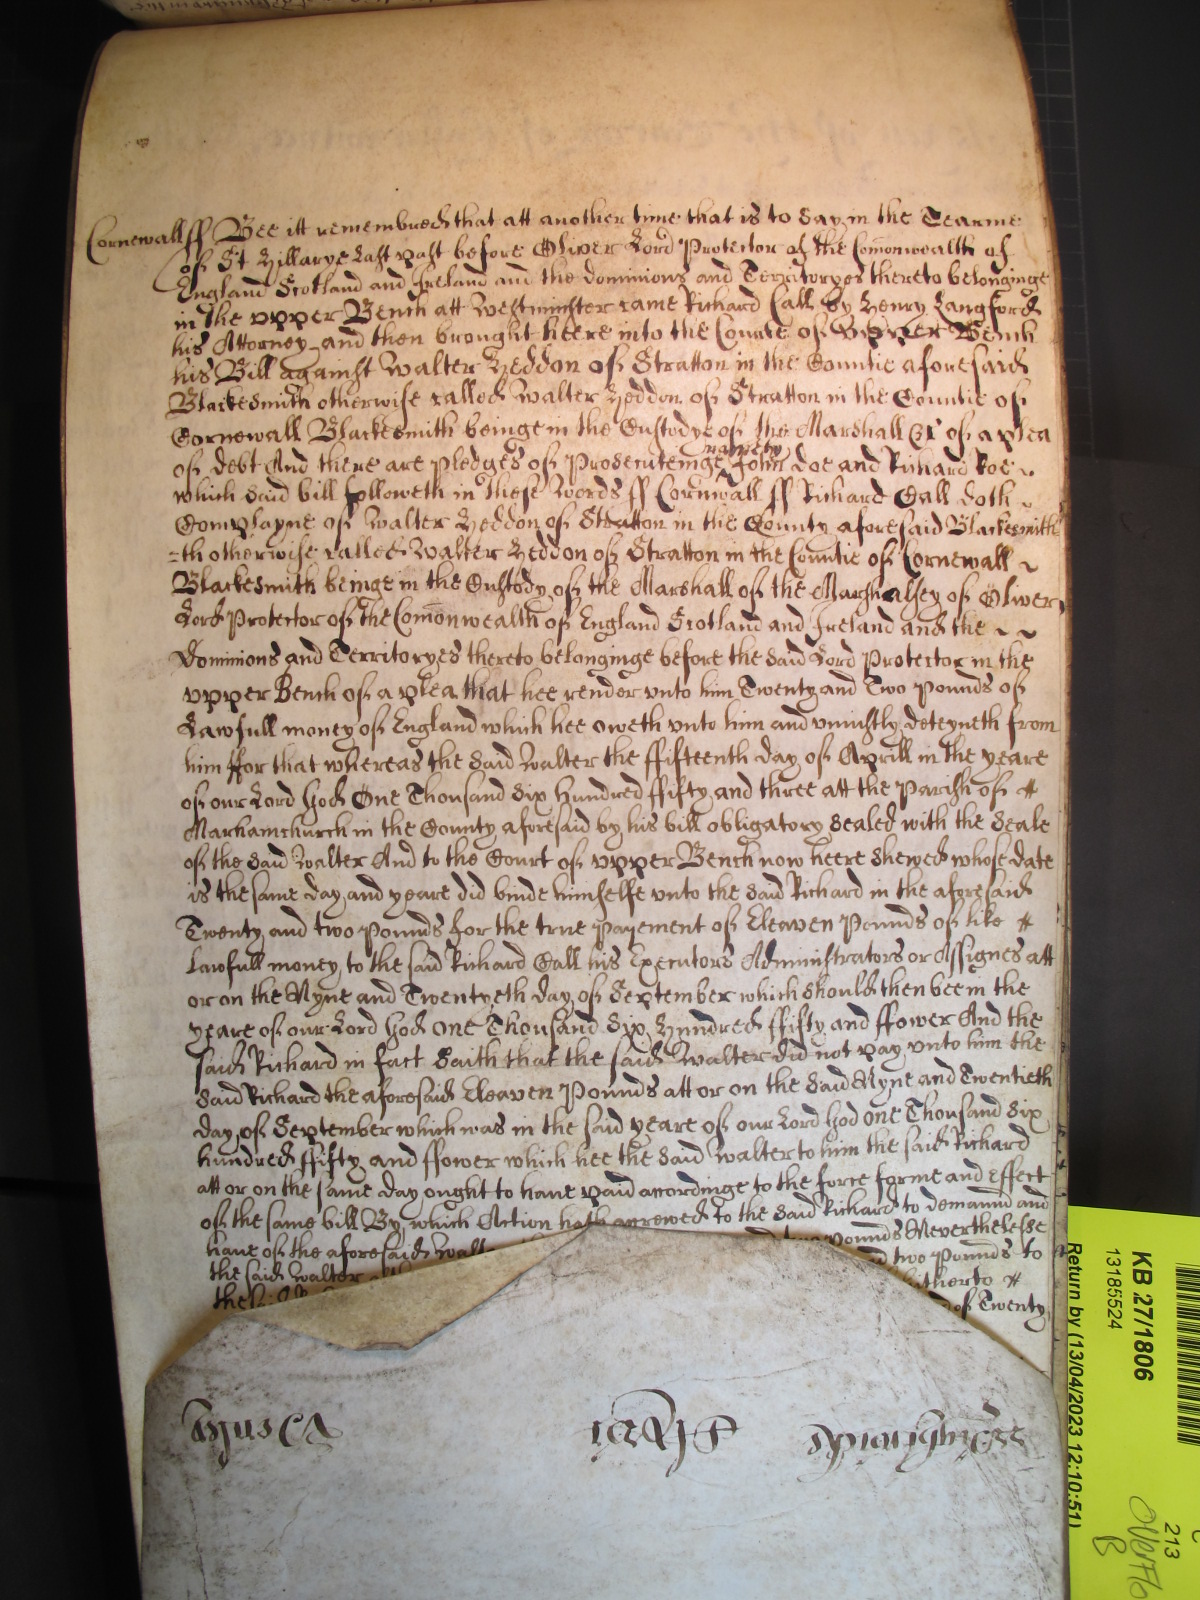 Cornewall ff Bee itt remembred that att another time that is to say in the Tearme
of St Hillarye last past before Oliver Lord Protector of the Comonwealth of
England Scotland and Ireland and the dominions and Territoryes thereto belonginge
in the upper Bench att Westminster came Richard Call by Henry Langford
his Attorney and then brought heere into the Courte of Upper Bench
his Bill against Walter Heddon of Stratton in the Countie aforesaid
Blackesmith otherwise called Walter Heddon of Stratton in the Countie of
Cornewall Blackesmith beinge in the Custodye of the Marshall &c of a plea
of debt And there are pledges of Prosecuteinge namely John Doe and Richard Roe
which said bill followeth in these Words ff Cornwall ff Richard Call doth
Complayne of Walter Heddon of Stratton in the County aforesaid Blackesmith
=th otherwise called Walter Heddon of Stratton in the Countie of Cornewall
Blackesmith beinge in the Custody of the Marshall of the Marshalsey of Oliver
Lord Protector of the Comonwealth of England Scotland and Ireland and the
Dominions and Territoryes thereto belonginge before the said Lord Protector in the
upper Bench of a plea that hee render unto him Twenty and Two Pounds of
Lawfull money of England which hee oweth unto him and uniustly deteyneth from
him ffor that whereas the said Walter the ffifteenth day of Aprill in the yeare
of our Lord God One Thousand Six hundred ffifty and three att the Parish of
Marhamchurch in the County aforesaid by his bill obligatory sealed with the seale
of the said Walter And to the Court of upper Bench now heere shewed whose date
is the same day and yeare did binde himselfe unto the said Richard in the aforesaid
Twenty and two Pounds for the true payement of Eleaven Pounds of like
lawfull money to the said Richard Call his Executors Administrators or Assignes att
or on the Nyne and Twentyeth day of September which should then bee in the
yeare of our Lord God One Thousand Six Hundred ffifty and ffower And the
said Richard in fact saith that the said Walter did not pay unto him the
said Richard the aforesaid Eleaven Pounds att or on the said Nyne and Twentieth
day of September which was in the said yeare of our Lord God One Thousand Six
hundred ffifty and ffower which hee the said Walter to him the said Richard
att or on the same day ought to have paid accordinge to the force forme and Effect
of the same bill By which Action hath accrewed to the said Richard to demaund and
have of the aforesaid Walter two Pounds Neverthelesse
the said Walter and two Pounds to
the hitherto
of Twenty
KB 27/1806
13185524
Return by (13/04/2023 12:10:51)
213